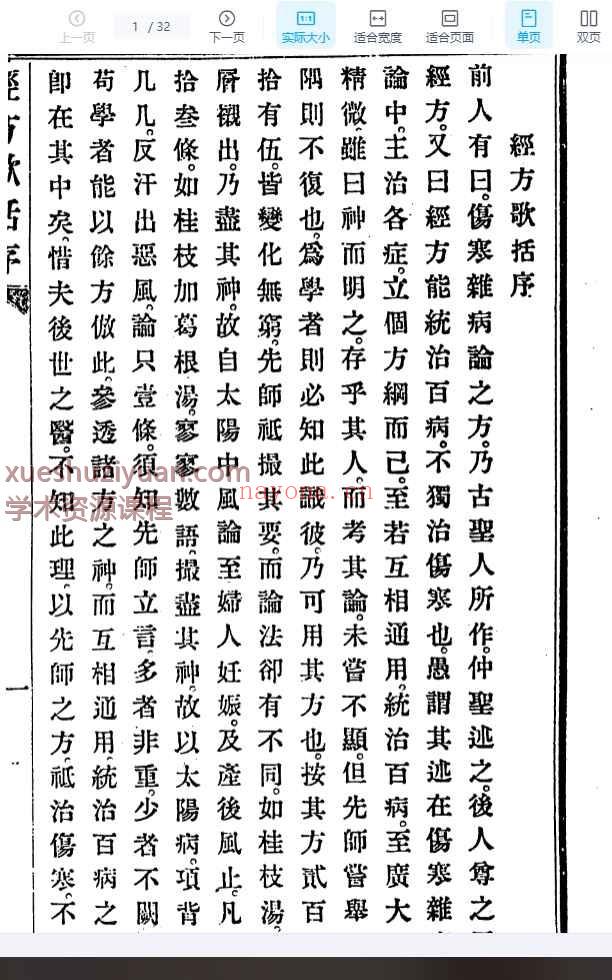 上一页
1 / 32
下一页
实际大小
适合宽度
适合页面
单页
双页
經方歌括序
前人有曰。傷寒雜病論之方。乃古聖人所作。仲聖述之。後人尊之
經方。又曰經方能統治百病。不獨治傷寒也。愚謂其述在傷寒雜
論中。主治各症。立個方綱而已。至若互相通用。統治百病。至廣大
精微。雖曰神而明之。存乎其人。而考其論。未嘗不顯。但先師嘗舉
隅則不復也。爲學者則必知此識彼。乃可用其方也。按其方貳百
拾有伍。皆變化無窮。先師祗撮其要。而論法卻有不同。如桂枝湯。
屑襯出。乃盡其神。故自太陽中風論至婦人妊娠。及產後風止。凡
拾叁條。如桂枝加葛根湯。寥寥數語。撮盡其神。故以太陽病。項背
几几。反汗出惡風。論只壹條。須知先師立言。多者非重。少者不闕
苟學者能以餘方倣此。參透諸方之神。而互相通用。統治百病之
卽在其中矣。惜夫後世之醫。不知此理。以先師之方。祗治傷寒。不
經方歌括序
一
xueshuziyuan.com
学术资源课程
nayona.cn